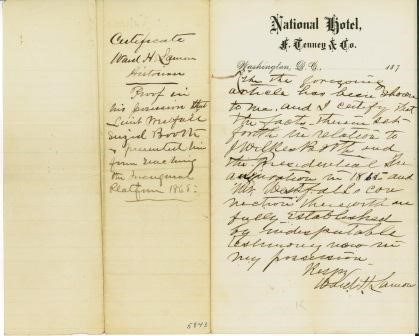 Certificate
Ward H. Lamon
Historian
Proof in
his possession that
Lieut Westfall
Booth
prevented him
from reaching
the Inaugural
Platform 1865-
5843
National Hotel,
F. Tenney & Co.
Washington, D.C., 187
the foregoing
article has been shown
to me, and I certify that
the facts therein set
forth in relation to
J Wilkes Booth and
the Presidential In-
auguration in 1865- and
Mr Westfalls con
nection therewith are
fully established
by indisputable
testimony now in
my possession
Respy
Ward H Lamon